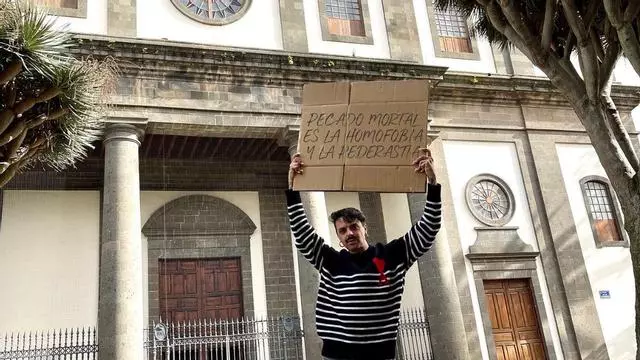 PECADO MORTAL
ES LA HOMOFOBIA
Y LA PEDERASTIA